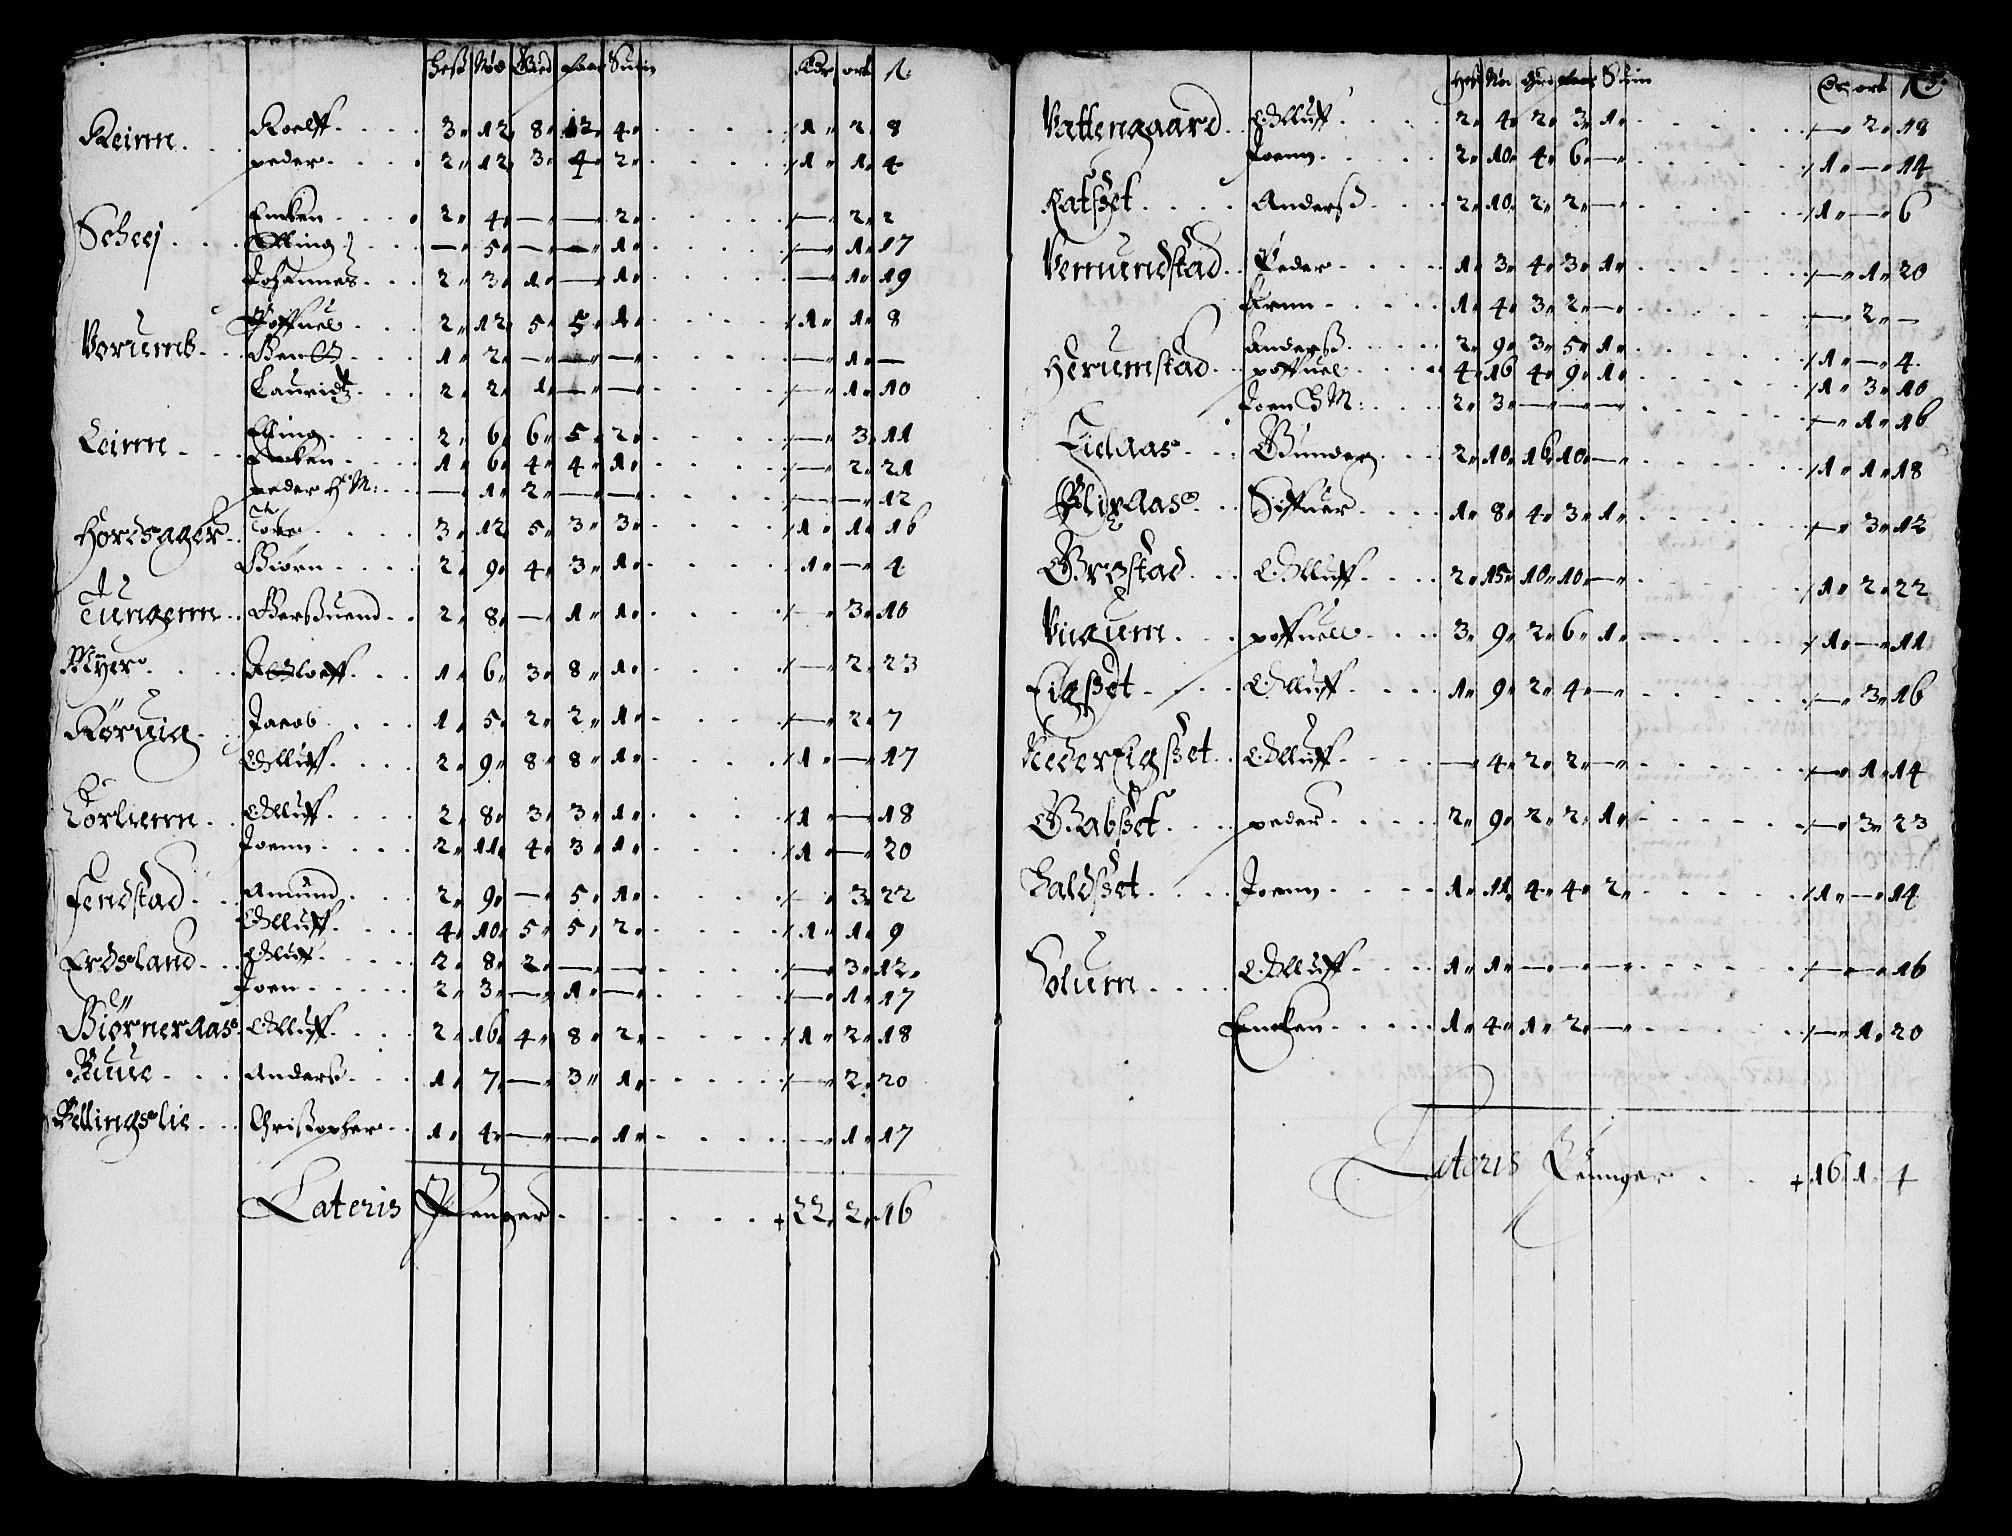 Hest Nød Gied faar Suin Rdr ort ß
Keirm Roelff 3 12 8 12 4 1 2 8
peder 2 12 3 4 2 1 1 4
Scheej Encken 2 4 — — 2 — 2 2
Elling — 5 — — 1 — 1 17
Johannes 2 3 1 — 1 — 1 19
Vorumb Poffuel 2 12 5 5 1 1 1 8
Bentt 1 2 — — — — 1 —
Lauridtz 2 2 1 — — — 1 10
Leirm Elling 2 6 6 5 2 — 3 11
Encken 1 6 4 4 1 — 2 21
peder H M: — 1 2 — — — — 12
Hordsager Tore 3 12 5 3 3 1 1 16
Biørn 2 9 4 3 1 1 — 4
Tungem Berßuend 2 8 — 1 1 — 3 10
Myer 1 6 3 8 1 — 2 23
Køruig Jacob 1 5 2 2 1 — 2 7
Olluff 2 9 8 8 1 1 — 17
Torliem Olluff 2 8 3 3 1 1 — 18
Joenn 2 11 4 3 1 1 — 20
Fendstad Amund 2 9 — 5 1 — 3 22
Olluff 4 10 5 5 2 1 1 9
Erdsland Olluff 2 8 2 — — — 3 12
Joen 2 3 — 1 — — 1 17
Biørneraas Olluff 2 16 4 8 2 1 2 18
Ruue Anders 1 7 — 3 1 — 2 20
Rellingslie Christopher 1 4 — — 1 — 1 17
Lateris Penger 22 2 16
Hest Nød Gied faar Suin Dr ort ß
Vattengaard Olluff 2 4 2 3 1 — 2 18
Joenn 2 10 4 6 — 1 — 14
Katßet Anderß 2 10 2 2 — 1 — 6
Vermundstad Peder 1 3 4 3 1 — 1 20
Arnn 1 4 3 2 — — 2 —
Herumstad anderß 2 9 3 5 1 1 — 4
poffuel 4 16 4 9 1 1 3 10
Joen H M: 2 3 — — — — 1 16
Lidaas Gunder 2 10 16 10 — 1 1 18
Blixaas Siffuer 1 8 4 3 1 — 3 12
Grøstad Olluff 2 15 10 10 — 1 2 22
Viigum poffuell 3 9 2 6 1 1 — 11
Eigßet Olluff 1 9 2 4 — — 3 16
Neder Eigßet Olluff — 4 2 2 — — 1 14
Gabßet peder 2 9 2 2 1 — 3 23
Haldßet Joenn 1 11 4 4 2 1 — 14
Holum Olluff 1 1 — — — — — 16
Encken 1 4 1 2 — — 1 20
Lateris Penger 16 1 4